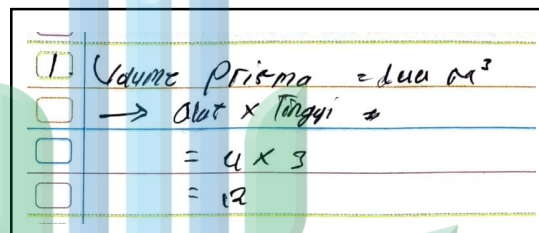 1. Volume Prisma = luas m³
→ alat x Tinggi
= 4 x 3
= 12